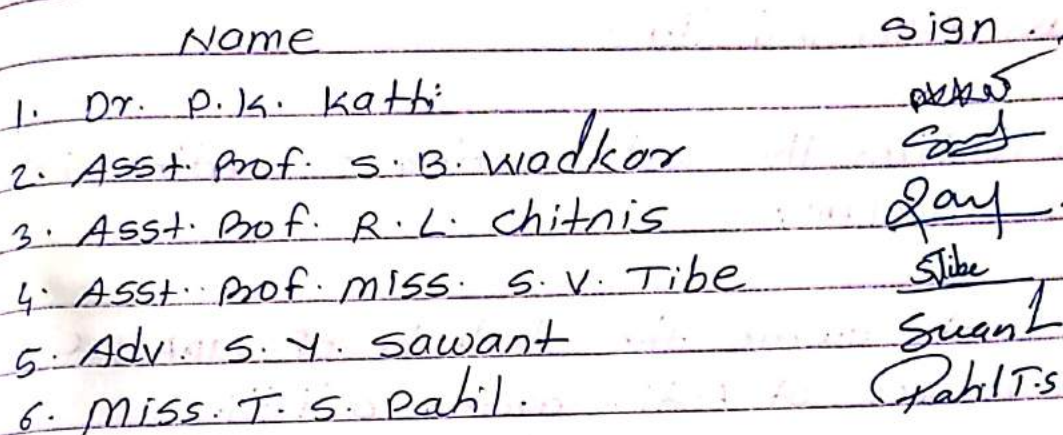 Name sign.
1. Dr. P. K. Katti
2. Asst. Prof. S. B. Wadkar
3. Asst. Prof. R. L. Chitnis
4. Asst. Prof. Miss. S. V. Tibe STibe
5. Adv. S. Y. Sawant
6. Miss. T. S. Patil. Patil T.S